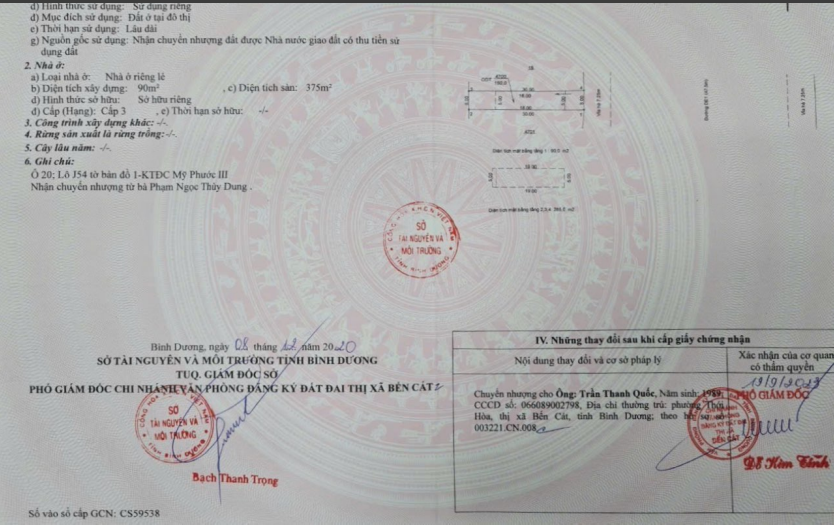 d) Hình thức sử dụng: Sử dụng riêng
đ) Mục đích sử dụng: Đất ở tại đô thị
e) Thời hạn sử dụng: Lâu dài
g) Nguồn gốc sử dụng: Nhận chuyển nhượng đất được Nhà nước giao đất có thu tiền sử
dụng đất
2. Nhà ở:
a) Loại nhà ở: Nhà ở riêng lẻ
b) Diện tích xây dựng: 90m² , c) Diện tích sàn: 375m²
d) Hình thức sở hữu: Sở hữu riêng
đ) Cấp (Hạng): Cấp 3 , e) Thời hạn sở hữu: -/-
3. Công trình xây dựng khác: -/-.
4. Rừng sản xuất là rừng trồng:-/-.
5. Cây lâu năm: -/-.
6. Ghi chú:
Ô 20; Lô J54 tờ bản đồ 1-KTĐC Mỹ Phước III
Nhận chuyển nhượng từ bà Phạm Ngọc Thùy Dung .
SỞ
TÀI NGUYÊN VÀ
MÔI TRƯỜNG
TỈNH BÌNH DƯƠNG
Bình Dương, ngày 08 tháng 12 năm 2020
SỞ TÀI NGUYÊN VÀ MÔI TRƯỜNG TỈNH BÌNH DƯƠNG
TUQ. GIÁM ĐỐC SỞ
PHÓ GIÁM ĐỐC CHI NHÁNH VĂN PHÒNG ĐĂNG KÝ ĐẤT ĐAI THỊ XÃ BẾN CÁT
SỞ
TÀI NGUYÊN VÀ
MÔI TRƯỜNG
TỈNH BÌNH DƯƠNG
Bạch Thanh Trọng
Số vào sổ cấp GCN: CS59538
IV. Những thay đổi sau khi cấp giấy chứng nhận
Nội dung thay đổi và cơ sở pháp lý
Xác nhận của cơ quan
có thẩm quyền
Chuyển nhượng cho Ông: Trần Thanh Quốc, Năm sinh: 1989,
CCCD số: 066089002798, Địa chỉ thường trú: phường Thới
Hòa, thị xã Bến Cát, tỉnh Bình Dương; theo hồ sơ số
003221.CN.008
PHÓ GIÁM ĐỐC
BẾN CÁT